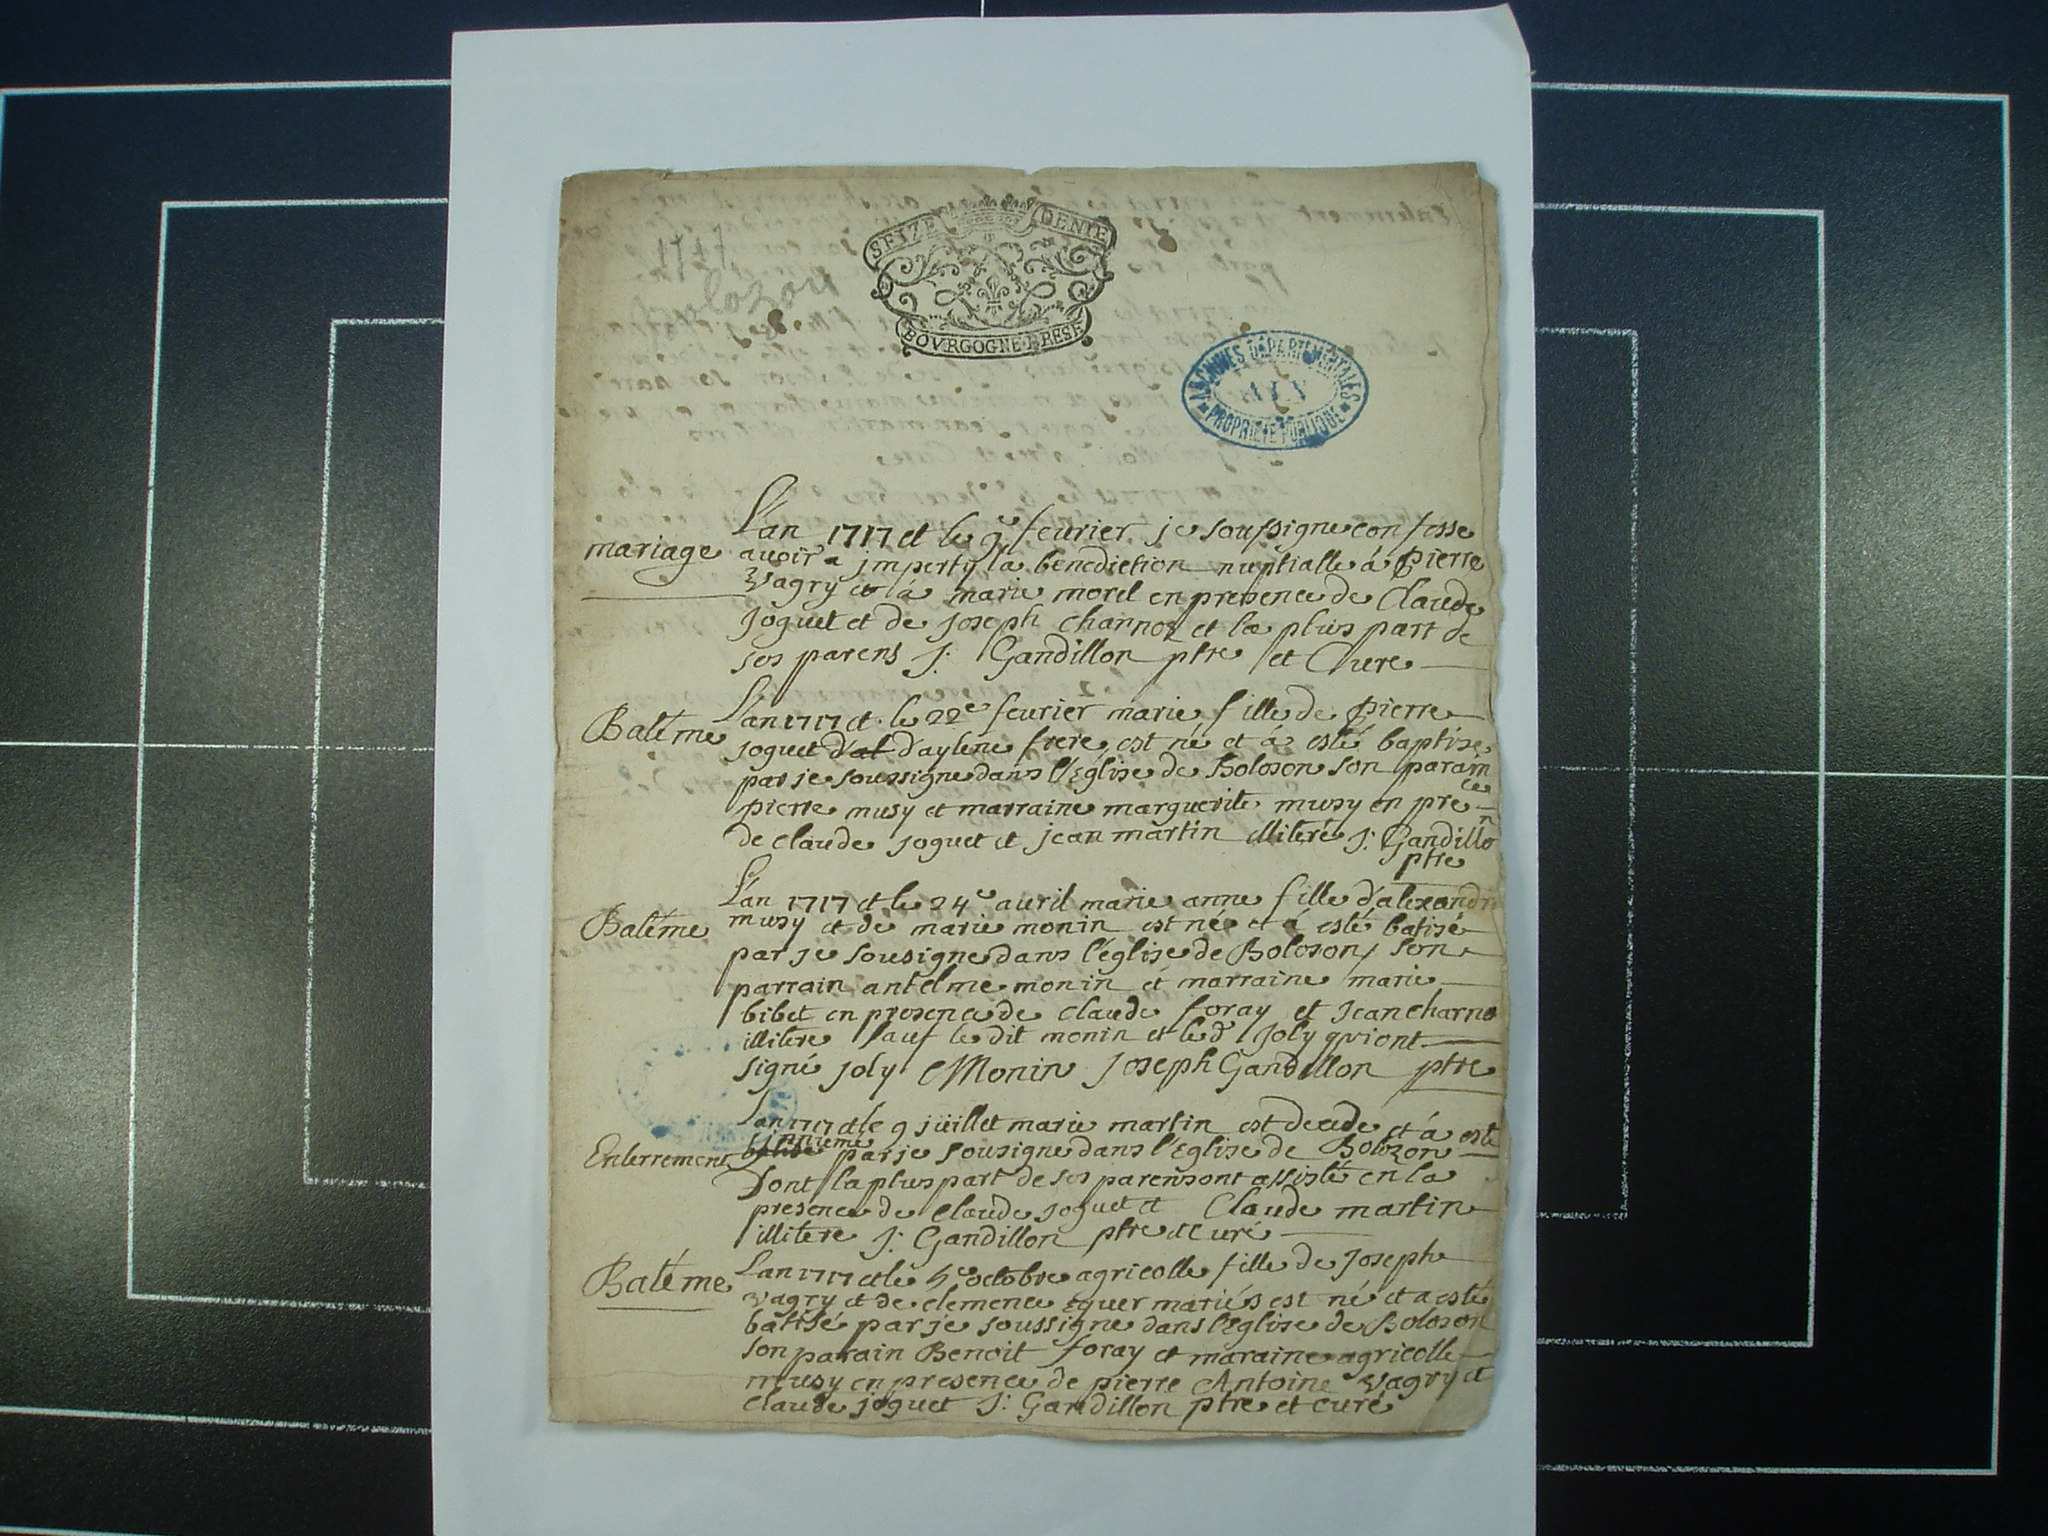 SEIZE DENIE
1717
Bolozon
BOVRGOGNE BRESE
ARCHIVES DÉPARTEMENTALES
AIN
PROPRIÉTÉ PUBLIQUE
L'an 1717 et le 9e feurier je soussigne confesse
mariage auoir imperty la benediction nuptialle á Pierre
vagry et á marie morel en presence de Claude
Joguet et de Joseph Charnoz et la plus part de
ses parens J: Gandillon ptre et Cure
L'an 1717 et le 22e feurier marie fille de Pierre
Batéme joguet d'al d'aylene frere est né et á esté baptise
par je soussigne dans l'Eglise de Boloson son parain
pierre musy et marraine marguerite musy en presence
de claude joguet et jean martin illiteré J: Gandillon
ptre
L'an 1717 et le 24e auril marie anne fille d'alexandre
Batéme musy et de marie monin est né et á esté batisé
par je sousigne dans l'église de Boloson son
parrain antelme monin et marraine marie
bibet en presence de claude foray et Jean charno
illitere sauf le dit monin et le d Joly qui ont
signé joly Monin Joseph Gandillon ptre
L'an 1717 et le 9 juillet marie martin est decede et á esté
Enterrement batisé par je sousigne dans l'Eglise de Bolozon
dont la plus part de ses parens ont assisté en la
presence de Claude joguet et Claude martin
illitere J: Gandillon ptre et Curé
L'an 1717 et le 5e octobre agricolle fille de Joseph
Batéme vagry et de clemence equer mariés est né et a esté
batisé par je soussigne dans l'Eglise de Boloson
son parain Benoit foray et maraine agricolle
musy en presence de pierre Antoine vagry et
Claude joguet J: Gandillon ptre et curé